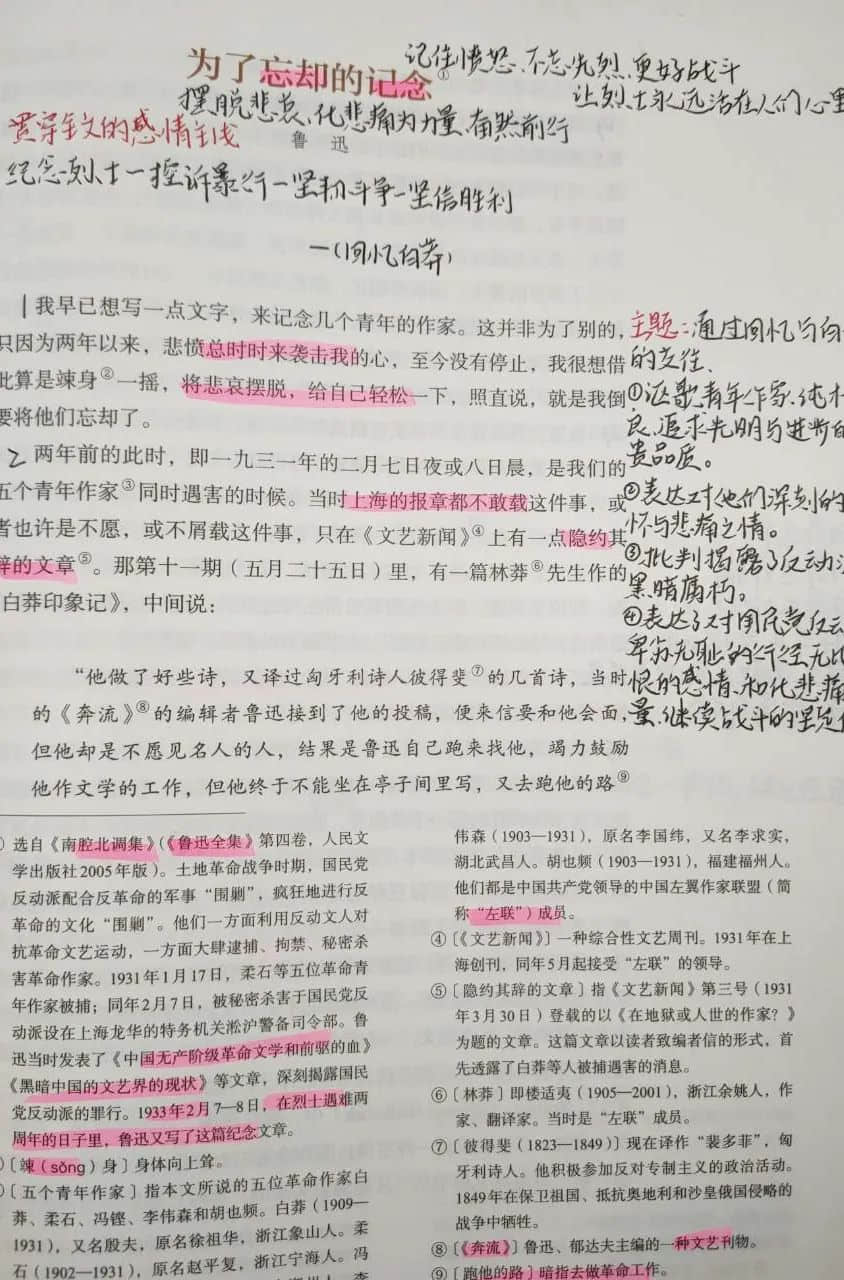 为了忘却的记念①
记住愤怒、不忘先烈、更好战斗
让烈士永远活在人们心里
摆脱悲哀、化悲痛为力量、奋然前行
鲁 迅
贯穿全文的感情主线
纪念烈士一控诉暴行一坚韧斗争一坚信胜利
一(回忆白莽)
1 我早已想写一点文字，来记念几个青年的作家。这并非为了别的，
只因为两年以来，悲愤总时时来袭击我的心，至今没有停止，我很想借
此算是竦身②一摇，将悲哀摆脱，给自己轻松一下，照直说，就是我倒
要将他们忘却了。
2 两年前的此时，即一九三一年的二月七日夜或八日晨，是我们的
五个青年作家③同时遇害的时候。当时上海的报章都不敢载这件事，或
者也许是不愿，或不屑载这件事，只在《文艺新闻》④上有一点隐约其
辞的文章⑤。那第十一期（五月二十五日）里，有一篇林莽⑥先生作的
《白莽印象记》，中间说：
“他做了好些诗，又译过匈牙利诗人彼得斐⑦的几首诗，当时
的《奔流》⑧的编辑者鲁迅接到了他的投稿，便来信要和他会面，
但他却是不愿见名人的人，结果是鲁迅自己跑来找他，竭力鼓励
他作文学的工作，但他终于不能坐在亭子间里写，又去跑他的路⑨
主题：通过回忆与白
的交往、
①讴歌青年作家、纯朴
良、追求光明与进步的
贵品质。
②表达对他们深刻的
怀与悲痛之情。
③批判揭露了反动派
黑暗腐朽。
④表达了对国民党反动
卑劣无耻的行径无比
恨的感情、和化悲痛
量、继续战斗的坚定
选自《南腔北调集》（《鲁迅全集》第四卷，人民文
学出版社2005年版）。土地革命战争时期，国民党
反动派配合反革命的军事“围剿”，疯狂地进行反
革命的文化“围剿”。他们一方面利用反动文人对
抗革命文艺运动，一方面大肆逮捕、拘禁、秘密杀
害革命作家。1931年1月17日，柔石等五位革命青
年作家被捕；同年2月7日，被秘密杀害于国民党反
动派设在上海龙华的特务机关淞沪警备司令部。鲁
迅当时发表了《中国无产阶级革命文学和前驱的血》
《黑暗中国的文艺界的现状》等文章，深刻揭露国民
党反动派的罪行。1933年2月7—8日，在烈士遇难两
周年的日子里，鲁迅又写了这篇纪念文章。
〔竦（sǒng）身〕身体向上耸。
〔五个青年作家〕指本文所说的五位革命作家白
莽、柔石、冯铿、李伟森和胡也频。白莽（1909—
1931），又名殷夫，原名徐祖华，浙江象山人。柔
石（1902—1931），原名赵平复，浙江宁海人。冯
伟森（1903—1931），原名李国纬，又名李求实，
湖北武昌人。胡也频（1903—1931），福建福州人。
他们都是中国共产党领导的中国左翼作家联盟（简
称“左联”）成员。
④〔《文艺新闻》〕一种综合性文艺周刊。1931年在上
海创刊，同年5月起接受“左联”的领导。
⑤〔隐约其辞的文章〕指《文艺新闻》第三号（1931
年3月30日）登载的以《在地狱或人世的作家？》
为题的文章。这篇文章以读者致编者信的形式，首
先透露了白莽等人被捕遇害的消息。
⑥〔林莽〕即楼适夷（1905—2001），浙江余姚人，作
家、翻译家。当时是“左联”成员。
⑦〔彼得斐（1823—1849）〕现在译作“裴多菲”，匈
牙利诗人。他积极参加反对专制主义的政治活动。
1849年在保卫祖国、抵抗奥地利和沙皇俄国侵略的
战争中牺牲。
⑧〔《奔流》〕鲁迅、郁达夫主编的一种文艺刊物。
⑨〔跑他的路〕暗指去做革命工作。